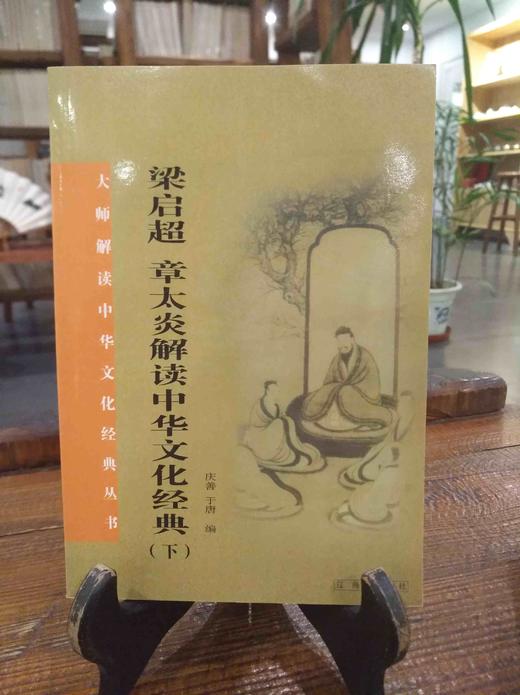 大师解读中华文化经典丛书
梁启超 章太炎解读中华文化经典(下)
庆善 于唐 编